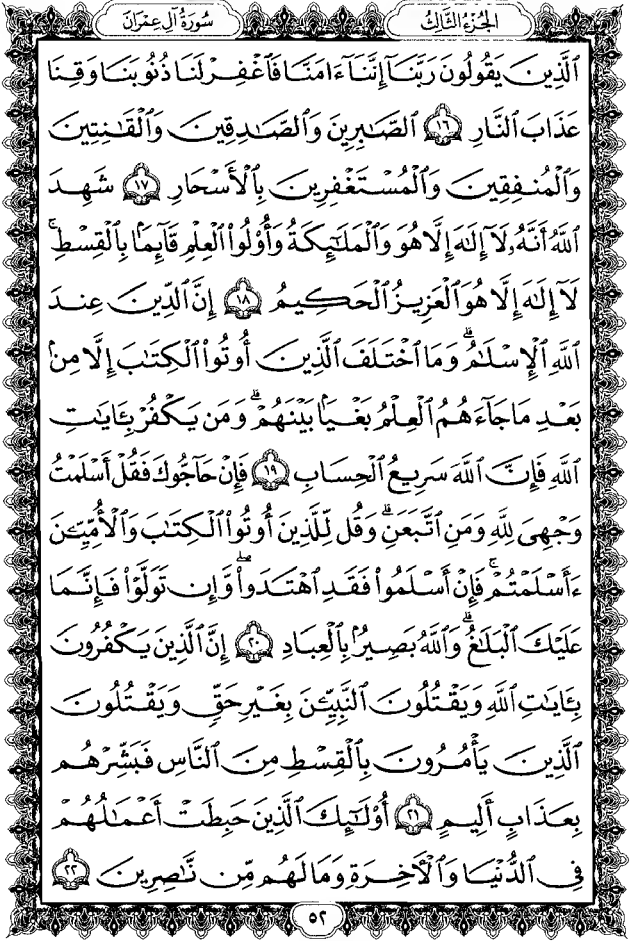 سُورَةُ آلِ عِمْرَانَ الجُزْءُ الثَّالِثُ
ٱلَّذِينَ يَقُولُونَ رَبَّنَآ إِنَّنَآ ءَامَنَّا فَٱغْفِرْ لَنَا ذُنُوبَنَا وَقِنَا
عَذَابَ ٱلنَّارِ ١٦ ٱلصَّٰبِرِينَ وَٱلصَّٰدِقِينَ وَٱلْقَٰنِتِينَ
وَٱلْمُنفِقِينَ وَٱلْمُسْتَغْفِرِينَ بِٱلْأَسْحَارِ ١٧ شَهِدَ
ٱللَّهُ أَنَّهُۥ لَآ إِلَٰهَ إِلَّا هُوَ وَٱلْمَلَٰٓئِكَةُ وَأُو۟لُوا۟ ٱلْعِلْمِ قَآئِمًۢا بِٱلْقِسْطِ ۚ
لَآ إِلَٰهَ إِلَّا هُوَ ٱلْعَزِيزُ ٱلْحَكِيمُ ١٨ إِنَّ ٱلدِّينَ عِندَ
ٱللَّهِ ٱلْإِسْلَٰمُ ۗ وَمَا ٱخْتَلَفَ ٱلَّذِينَ أُوتُوا۟ ٱلْكِتَٰبَ إِلَّا مِنۢ
بَعْدِ مَا جَآءَهُمُ ٱلْعِلْمُ بَغْيًۢا بَيْنَهُمْ ۗ وَمَن يَكْفُرْ بِـَٔايَٰتِ
ٱللَّهِ فَإِنَّ ٱللَّهَ سَرِيعُ ٱلْحِسَابِ ١٩ فَإِنْ حَآجُّوكَ فَقُلْ أَسْلَمْتُ
وَجْهِىَ لِلَّهِ وَمَنِ ٱتَّبَعَنِ ۗ وَقُل لِّلَّذِينَ أُوتُوا۟ ٱلْكِتَٰبَ وَٱلْأُمِّيِّـۧنَ
ءَأَسْلَمْتُمْ ۚ فَإِنْ أَسْلَمُوا۟ فَقَدِ ٱهْتَدَوا۟ ۖ وَّإِن تَوَلَّوْا۟ فَإِنَّمَا
عَلَيْكَ ٱلْبَلَٰغُ ۗ وَٱللَّهُ بَصِيرٌۢ بِٱلْعِبَادِ ٢٠ إِنَّ ٱلَّذِينَ يَكْفُرُونَ
بِـَٔايَٰتِ ٱللَّهِ وَيَقْتُلُونَ ٱلنَّبِيِّـۧنَ بِغَيْرِ حَقٍّ وَيَقْتُلُونَ
ٱلَّذِينَ يَأْمُرُونَ بِٱلْقِسْطِ مِنَ ٱلنَّاسِ فَبَشِّرْهُم
بِعَذَابٍ أَلِيمٍ ٢١ أُو۟لَٰٓئِكَ ٱلَّذِينَ حَبِطَتْ أَعْمَٰلُهُمْ
فِى ٱلدُّنْيَا وَٱلْـَٔاخِرَةِ وَمَا لَهُم مِّن نَّٰصِرِينَ ٢٢
٥٢